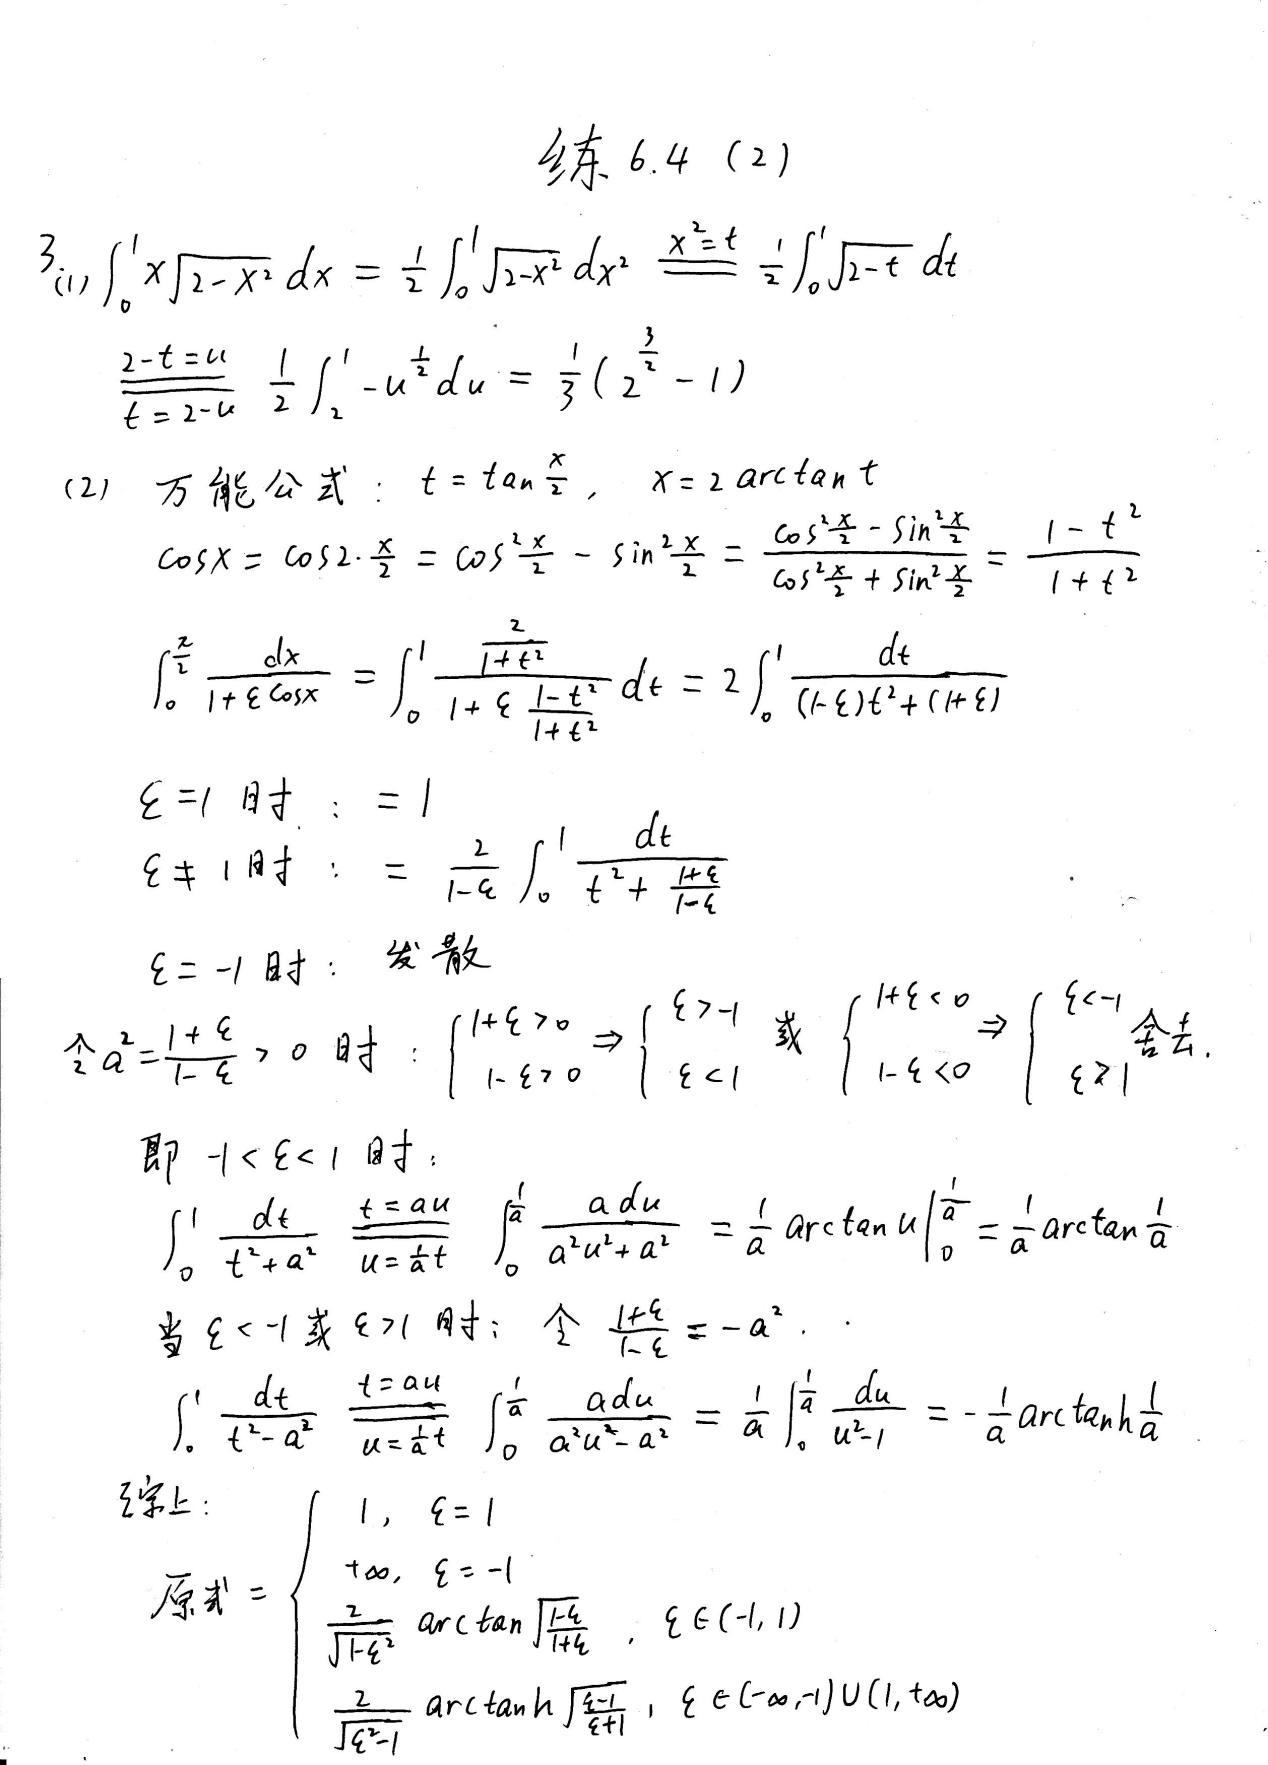 练 6.4 (2)
3.(1) ∫₀¹ x√(2-x²) dx = 1/2 ∫₀¹ √(2-x²) dx² =(x²=t)= 1/2 ∫₀¹ √(2-t) dt
=(2-t=u, t=2-u)= 1/2 ∫₂¹ -u^(1/2) du = 1/3 (2^(3/2) - 1)
(2) 万能公式: t = tan x/2, x = 2 arctan t
cosx = cos2·x/2 = cos² x/2 - sin² x/2 = (cos² x/2 - sin² x/2)/(cos² x/2 + sin² x/2) = (1-t²)/(1+t²)
∫₀^(π/2) dx/(1+εcosx) = ∫₀¹ (2/(1+t²))/(1+ε (1-t²)/(1+t²)) dt = 2∫₀¹ dt/((1-ε)t²+(1+ε))
ε=1 时: = 1
ε≠1时: = 2/(1-ε) ∫₀¹ dt/(t² + (1+ε)/(1-ε))
ε=-1 时: 发散
令a² = (1+ε)/(1-ε) > 0 时: {1+ε>0, 1-ε>0 ⇒ {ε>-1, ε<1 或 {1+ε<0, 1-ε<0 ⇒ {ε<-1, ε>1 舍去.
即 -1<ε<1 时:
∫₀¹ dt/(t²+a²) =(t=au, u=1/a t)= ∫₀^(1/a) a du/(a²u²+a²) = 1/a arctan u |₀^(1/a) = 1/a arctan 1/a
当 ε<-1 或 ε>1 时: 令 (1+ε)/(1-ε) = -a².
∫₀¹ dt/(t²-a²) =(t=au, u=1/a t)= ∫₀^(1/a) a du/(a²u²-a²) = 1/a ∫₀^(1/a) du/(u²-1) = -1/a arctanh 1/a
综上:
原式 = { 1, ε=1
+∞, ε=-1
2/√(1-ε²) arctan √((1-ε)/(1+ε)), ε∈(-1,1)
2/√(ε²-1) arctanh √((ε-1)/(ε+1)), ε∈(-∞,-1)∪(1,+∞)